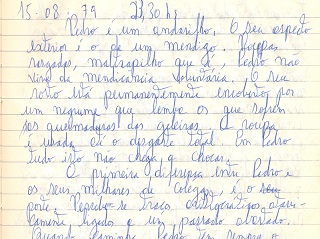 15 . 08 . 79 23,30 hs
Pedro é um andarilho. O seu aspecto
exterior é o de um mendigo. Roupas
rasgadas, maltrapilho que é, Pedro não
vive da mendicância voluntária. O seu
rosto está permanentemente encoberto por
um negrume que lembra os que sofrem
as queimaduras das geleiras. A roupa
é usada até o desgaste total. Em Pedro
tudo isto não chega a chocar.
A primeira diferença entre Pedro e
os seus milhares de colegas é o seu
porte. Percebe-se traços
ligados a um passado abastado.
Quando caminha Pedro tem sempre o